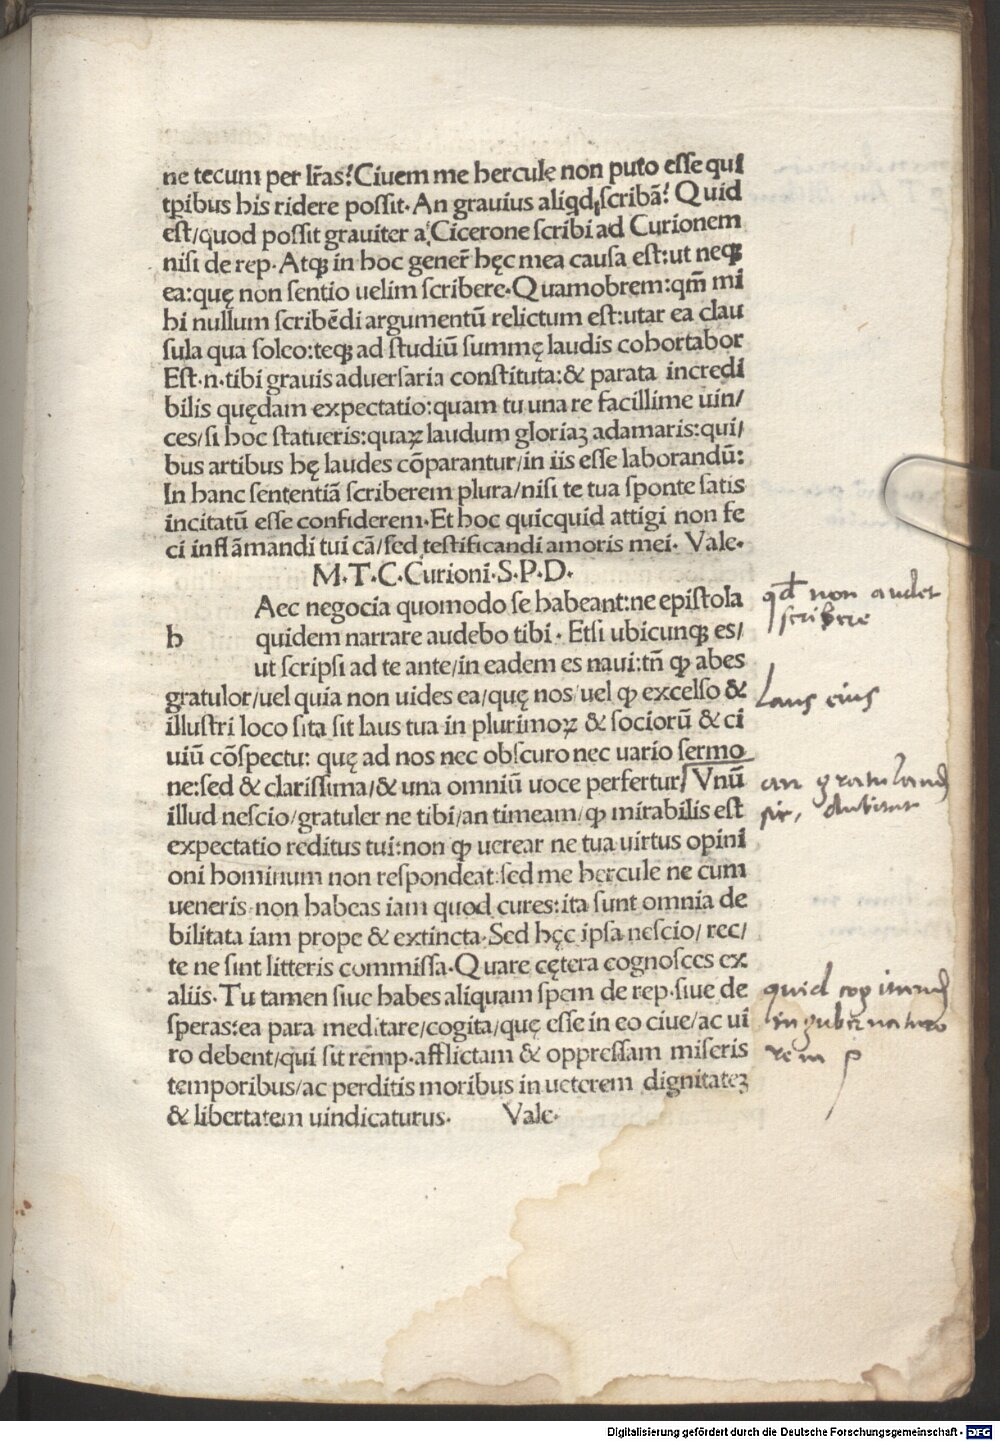 ne tecum per lr̃as? Ciuem me hercule non puto esse qui
tp̱ibus his ridere possit. An grauius aliqd scribã? Quid
est/quod possit grauiter a Cicerone scribi ad Curionem
nisi de rep. Atqꝫ in hoc gener̃ hęc mea causa est:ut neqꝫ
ea:quę non sentio uelim scribere. Quamobrem:qm̃ mi
hi nullum scribẽdi argumentũ relictum est:utar ea clau
sula qua soleo:teqꝫ ad studiũ summę laudis cohortabor
Est.n.tibi grauis aduersaria constituta:& parata incredi
bilis quędam expectatio:quam tu una re facillime uin/
ces/si hoc statueris:quaꝝ laudum gloriaꝫ adamaris:qui/
bus artibus hę laudes cõparantur/in iis esse laborandũ:
In hanc sententiã scriberem plura/nisi te tua sponte satis
incitatũ esse confiderem. Et hoc quicquid attigi non fe
ci inflãmandi tui cã/sed testificandi amoris mei. Vale.
M.T.C.Curioni.S.P.D.
Aec negocia quomodo se habeant:ne epistola
h quidem narrare audebo tibi. Etsi ubicunqꝫ es/
ut scripsi ad te ante/in eadem es naui:tñ ꝙ abes
gratulor/uel quia non uides ea/quę nos/uel ꝙ excelso &
illustri loco sita sit laus tua in plurimoꝝ & sociorũ & ci
uiũ cõspectu: quę ad nos nec obscuro nec uario sermo
ne:sed & clarissima/& una omniũ uoce perfertur/ Vnũ
illud nescio/gratuler ne tibi/an timeam/ꝙ mirabilis est
expectatio reditus tui:non ꝙ uerear ne tua uirtus opini
oni hominum non respondeat:sed me hercule ne cum
ueneris non habeas iam quod cures:ita sunt omnia de
bilitata iam prope & extincta. Sed hęc ipsa nescio/ rec/
te ne sint litteris commissa. Quare cętera cognosces ex
aliis. Tu tamen siue habes aliquam spem de rep.siue de
speras:ea para meditare/cogita/quę esse in eo ciue/ac ui
ro debent/qui sit remp.afflictam & oppressam miseris
temporibus/ac perditis moribus in ueterem dignitateꝫ
& libertatem uindicaturus. Vale.
qd non audet
scribere
Laus eius
an gratuland
sit, dubitat
quid cogitand
in gubernaturo
rem p
Digitalisierung gefördert durch die Deutsche Forschungsgemeinschaft - DFG